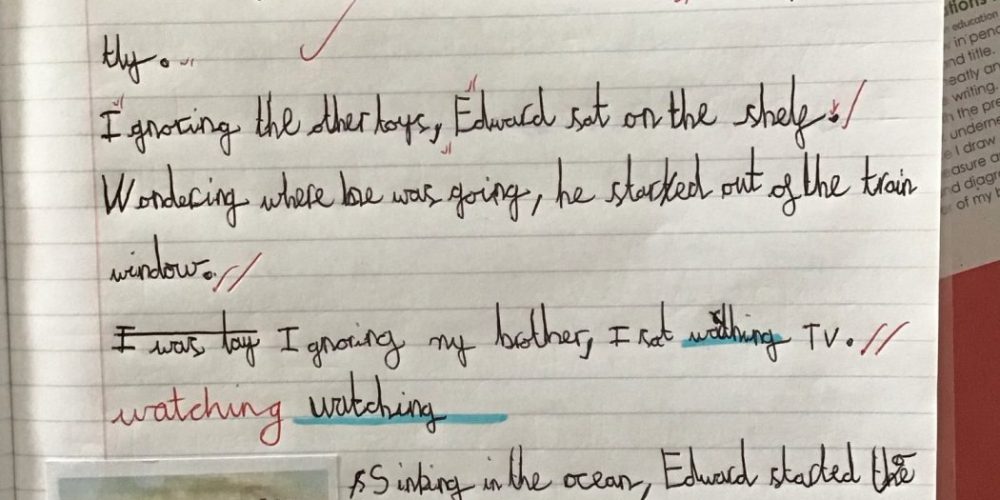 tly.
Ignoring the other toys, Edward sat on the shelf.
Wondering where he was going, he stared out of the train
window.
I was tay Ignoring my brother, I sat wathing TV.
watching watching
Sinking in the ocean, Edward started the
education
in penc
nd title.
eatly an
writing.
n the pre
undern
I draw
easure a
nd diagra
of my